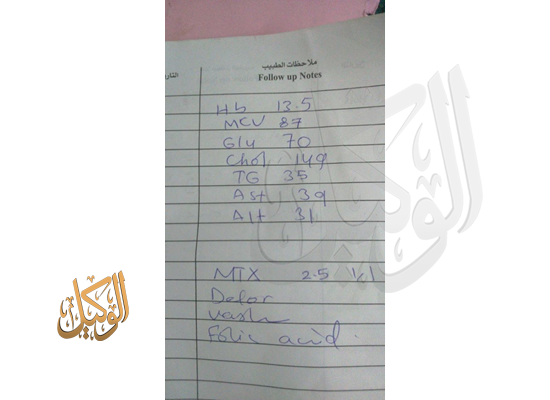 ملاحظات الطبيب
Follow up Notes
التار
Hb 13.5
MCV 87
Glu 70
Chol 149
TG 35
Ast 39
Alt 31
MTX 2.5 1x1
Folic acid.
الوكيل
الوكيل